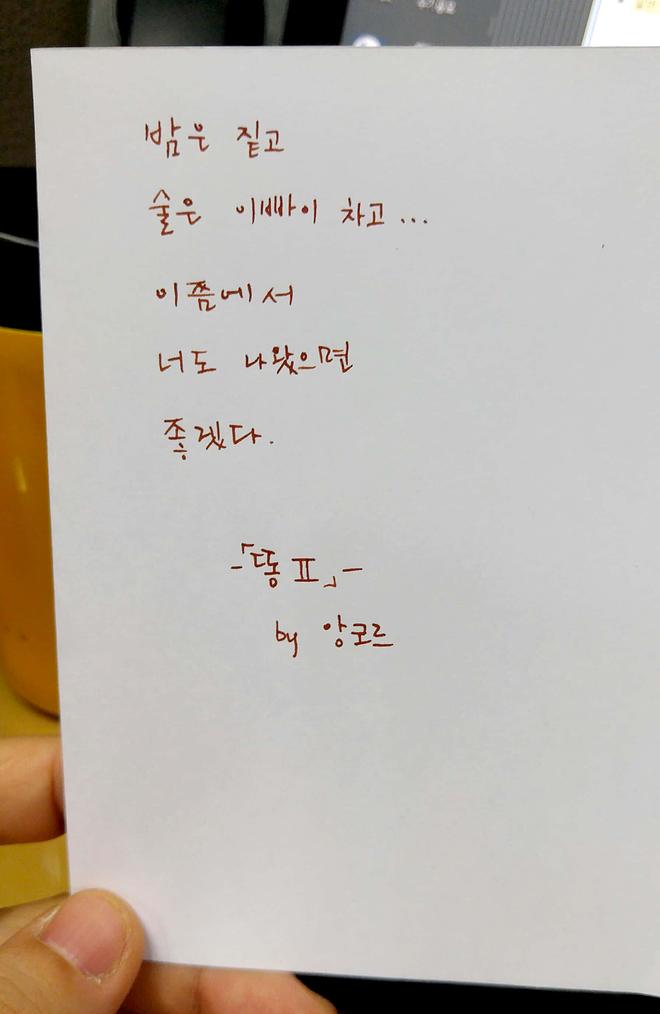 밤은 짙고
술은 이빠이 차고...
이쯤에서
너도 나왔으면
좋겠다.
-「똥 Ⅱ」-
by 앙코르